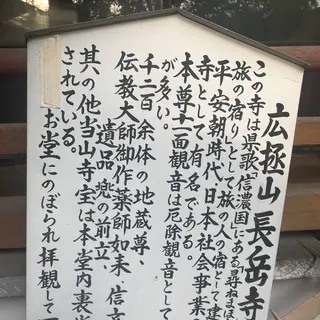 広拯山 長岳寺
この寺は県歌「信濃国にある尋ねまほ
旅の宿り」として旅の人の宿として建
平安朝時代日本社会事業
寺として有名である。
本尊十一面観音は厄除観音として
が多い。
千二百余体の地蔵尊
伝教大師御作薬師如来 信玄
遺品 兜の前立
其の他当山寺宝は本堂内裏堂
されている。
お堂にのぼられ拝観して下